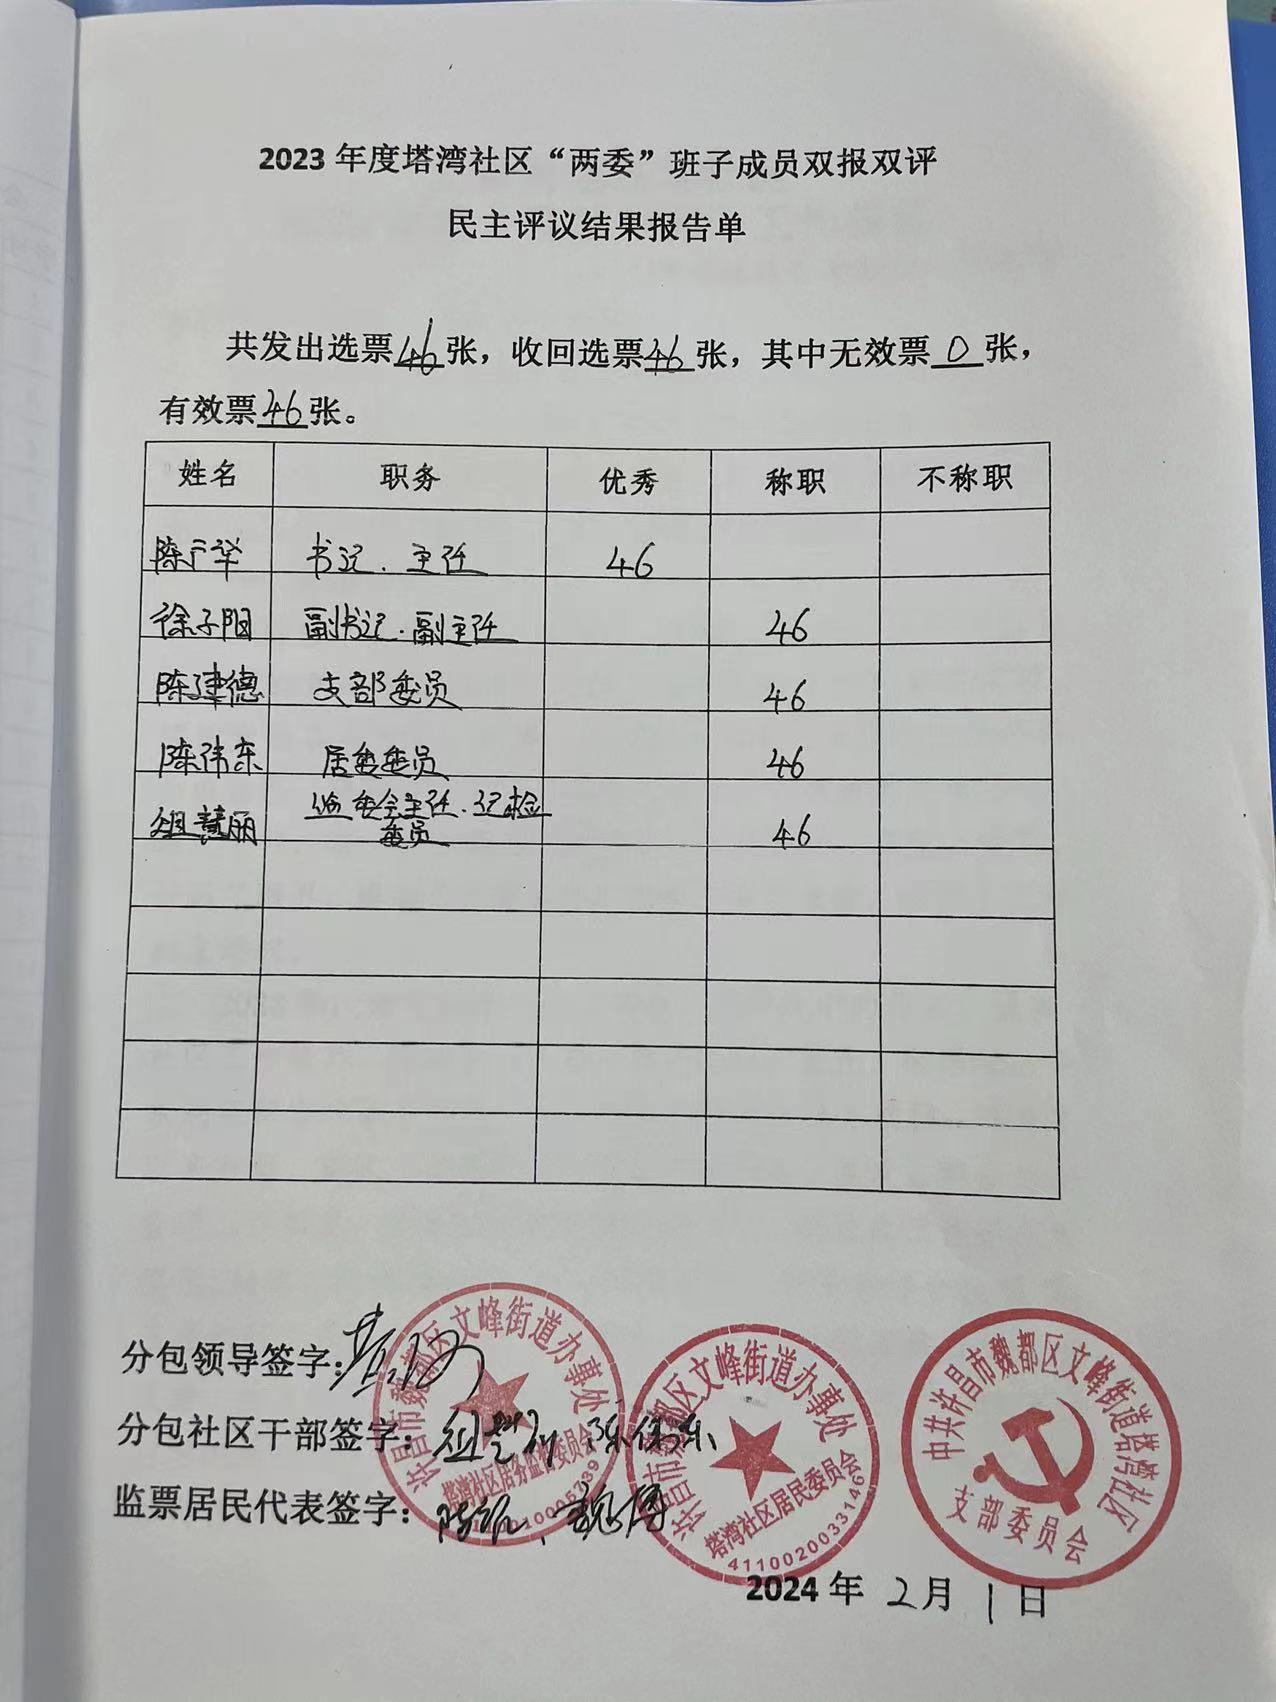 2023 年度塔湾社区“两委”班子成员双报双评
民主评议结果报告单
共发出选票46张，收回选票46张，其中无效票0张，
有效票46张。
姓名 职务 优秀 称职 不称职
陈广华 书记、主任 46
徐子阳 副书记、副主任 46
陈建德 支部委员 46
陈伟东 居委委员 46
慧丽 监委会主任、纪检委员 46
分包领导签字：
分包社区干部签字： 陈伟东
监票居民代表签字：
许昌市魏都区文峰街道办事处
塔湾社区居务监督委员会
许昌市魏都区文峰街道办事处
塔湾社区居民委员会
4110020033146
中共许昌市魏都区文峰街道塔湾社区
支部委员会
2024 年 2 月 1 日